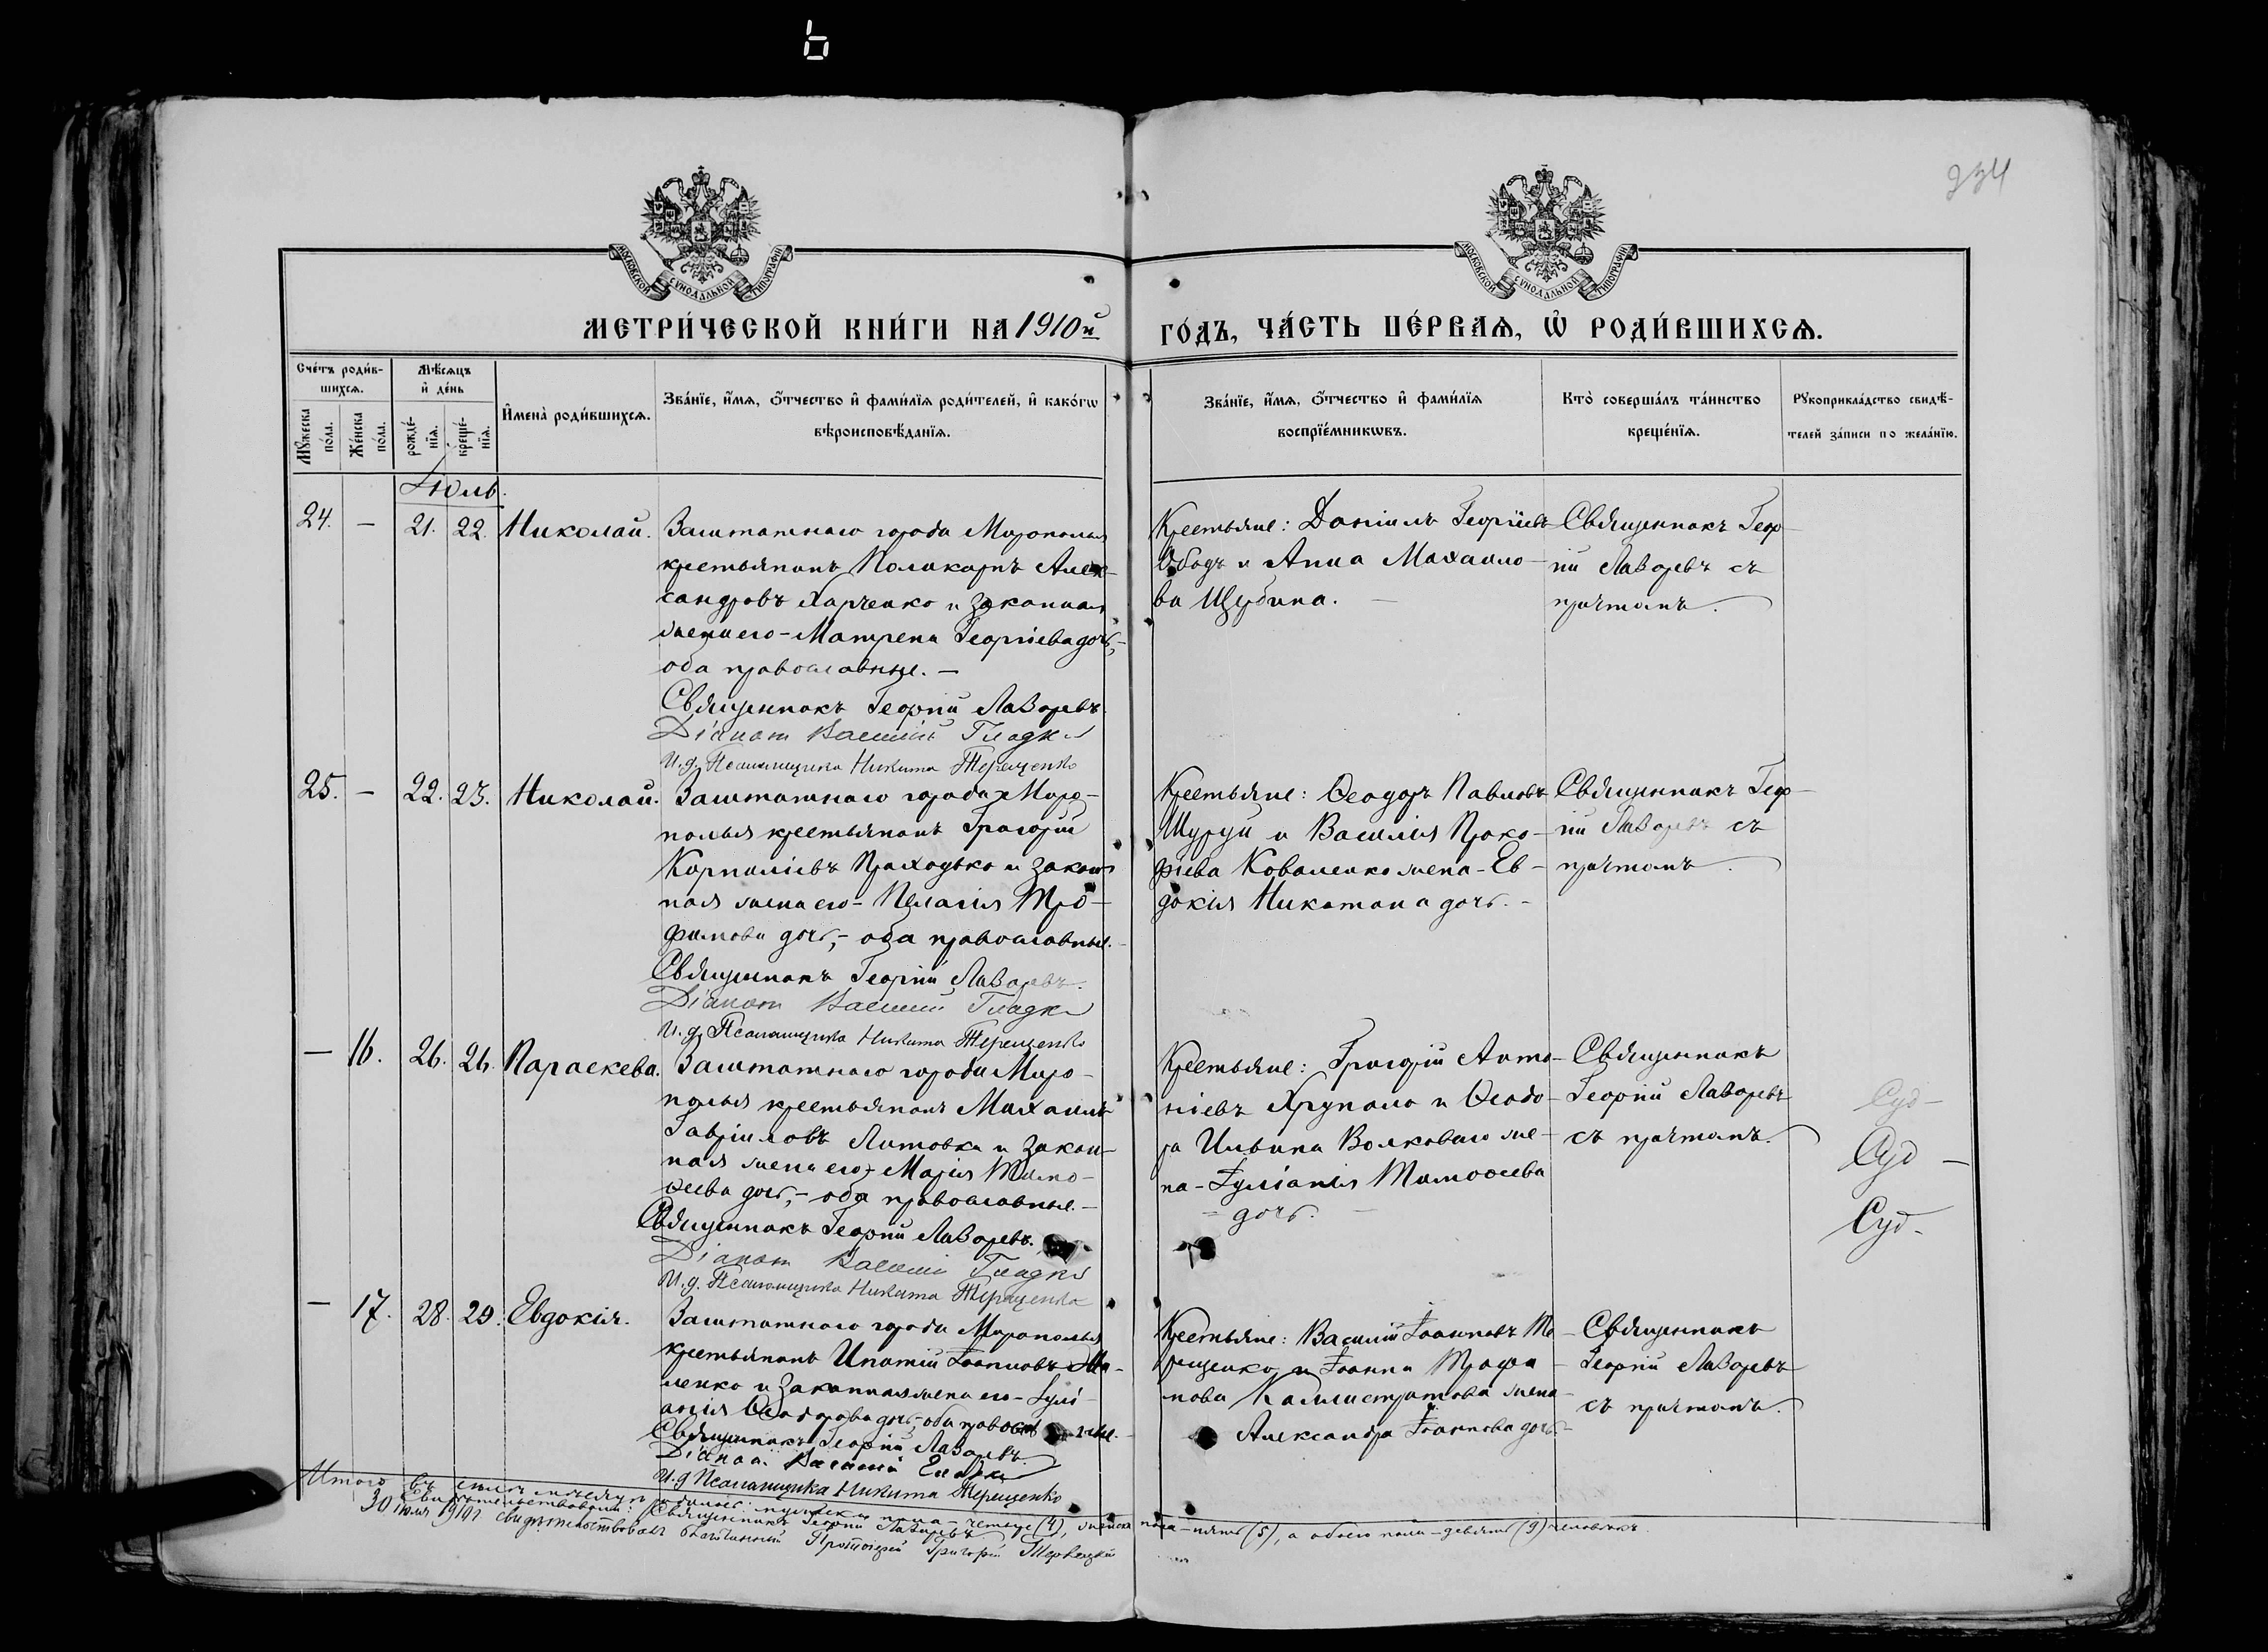 234
МОСКОВСКОЙ СѴНОДАЛЬНОЙ ТИПОГРАФІИ
МОСКОВСКОЙ СѴНОДАЛЬНОЙ ТИПОГРАФІИ
МЕТРИ́ЧЕСКОЙ КНИ́ГИ НА 1910й ГО́ДЪ, ЧА́СТЬ ПЕ́РВАѦ, Ѡ҆ РОДИ́ВШИХСѦ.
Сче́тъ роди́в-
шихсѧ.
Мꙋ́жеска по́ла.
Же́нска по́ла.
Мѣ́сѧцъ
и҆ де́нь
рожде́-
нїѧ.
креще́-
нїѧ.
И҆мена̀ роди́вшихсѧ.
Зва́нїе, и҆́мѧ, ѻ҆́тчество и҆ фами́лїѧ роди́телей, и҆ како́гѡ
вѣроисповѣ́данїѧ.
Зва́нїе, и҆́мѧ, ѻ҆́тчество и҆ фами́лїѧ
воспрїе́мникѡвъ.
Кто̀ соверша́лъ та́инство
креще́нїѧ.
Рꙋкоприкла́дство свидѣ́-
телей за́писи по жела́нїю.
Іюль.
24. — 21. 22. Николай.
Заштатнаго города Мирополья
крестьянинъ Поликарпъ Алек-
сандровъ Харченко и законная
жена его - Матрена Георгіева дочь, -
оба православные. —
Священникъ Георгій Лазаревъ.
Діаконъ Василій Гладкій
И. д. Псаломщика Никита Терещенко
Крестьяне: Даніилъ Георгіевъ
Ободъ и Анна Михаило-
ва Щербина. —
Священникъ Геор-
гій Лазаревъ съ
причтомъ.
25. — 22. 23. Николай.
Заштатнаго города Миро-
полья крестьянинъ Григорій
Корниліевъ Приходько и закон-
ная жена его - Пелагія Тро-
фимова дочь, - оба православные. -
Священникъ Георгій Лазаревъ.
Діаконъ Василій Гладкій
И. д. Псаломщика Никита Терещенко
Крестьяне: Ѳеодоръ Павловъ
Шуруй и Василія Проко-
фіева Коваленко жена - Ев-
докія Никитина дочь. -
Священникъ Геор-
гій Лазаревъ съ
причтомъ.
— 16. 26. 26. Параскева.
Заштатнаго города Миро-
полья крестьянинъ Михаилъ
Гавріиловъ Литовка и закон-
ная жена его - Марія Тимо-
ѳеева дочь, - оба православные. -
Священникъ Георгій Лазаревъ.
Діаконъ Василій Гладкій
И. д. Псаломщика Никита Терещенко
Крестьяне: Григорій Анто-
ніевъ Хрупало и Ѳеодо-
ра Ильина Волковаго же-
на - Іуліанія Тимоѳеева
- дочь. -
Священникъ
Георгій Лазаревъ
съ причтомъ.
— 17. 28. 29. Евдокія.
Заштатнаго города Мирополья
крестьянинъ Ипатій Іоанновъ
ленко и законная жена его - Іулі-
анія Ѳеодорова дочь, - оба
Священникъ Георгій Лазаревъ.
Діаконъ Василій Гладкій
И. д. Псаломщика Никита Терещенко
Крестьяне: Василій Іоанновъ Те-
рещенко и Іоанна Трофи-
мова Каллистратова жена -
Александра Іоаннова дочь. -
Священникъ
Георгій Лазаревъ
съ причтомъ.
Итого въ іюлѣ мѣсяцѣ родилось: мужеска пола - четыре (4), женска пола - пять (5), а обоего пола - девять (9) человѣкъ.
Свидѣтельствовали: Священникъ Георгій Лазаревъ
30 іюля 1910 г. свидѣтельствовалъ благочинный Протоіерей Григорій